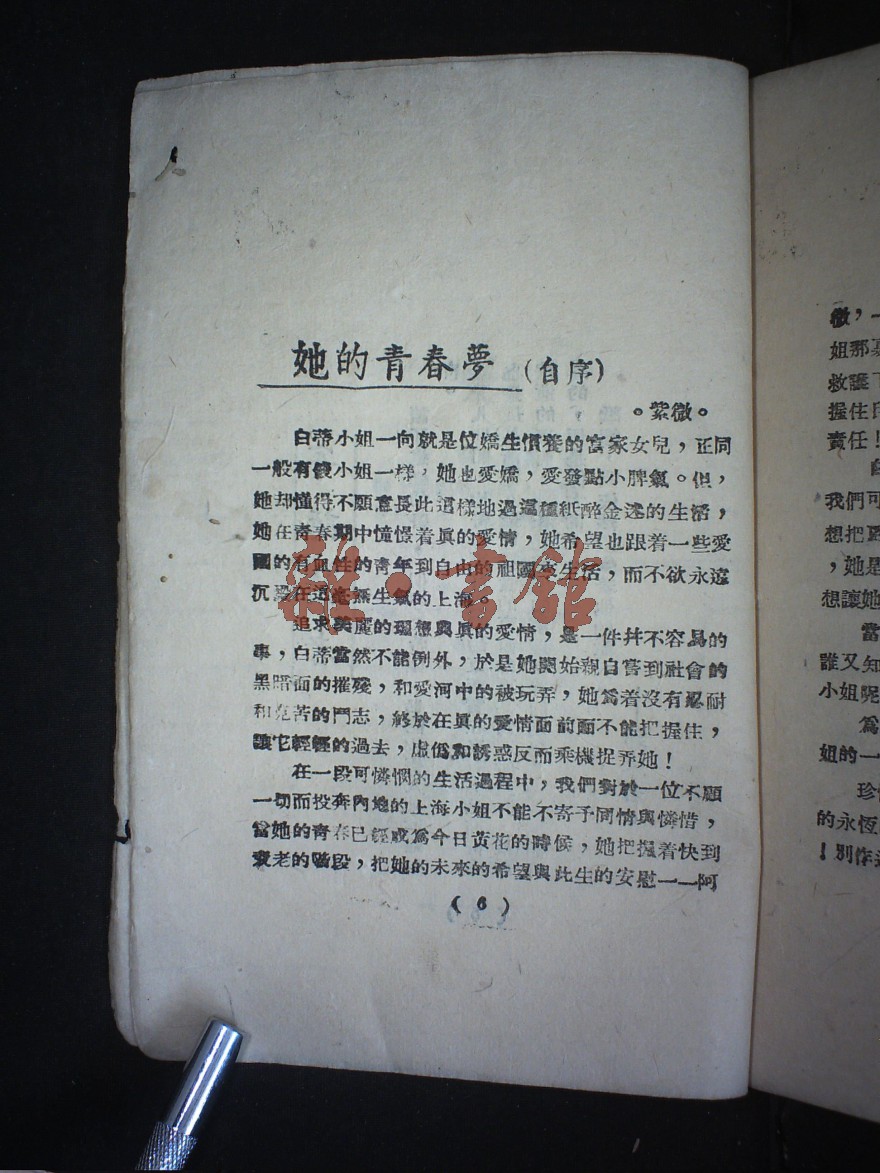 她的青春夢(自序)
。紫微。
白蒂小姐一向就是位嬌生慣養的富家女兒，正同
一般有錢小姐一樣，她也愛嬌，愛發點小脾氣。但，
她却懂得不願意長此這樣地過這種紙醉金迷的生活，
她在青春期中憧憬着眞的愛情，她希望也跟着一些愛
國的有血性的靑年到自由的祖國去生活，而不欲永遠
沉在這無生氣的上海
追求美麗的理想與眞的愛情，是一件幷不容易的
事，白蒂當然不能例外，於是她開始親自嘗到社會的
黑暗面的摧殘，和愛河中的被玩弄，她爲着沒有忍耐
和克苦的鬥志，終於在眞的愛情面前而不能把握住，
讓它輕輕的過去，虛僞和誘惑反而乘機捉弄她！
在一段可憐憫的生活過程中，我們對於一位不顧
一切而投奔內地的上海小姐不能不寄予同情與憐惜，
當她的青春已經成爲今日黃花的時候，她把握着快到
衰老的階段，把她的未來的希望與此生的安慰——阿
(6)
雜·書館
微，一
姐那
救護
握住
責任！
我們可
想把
，她是
想讓她
當
誰又知
小姐呢
爲
姐的一
珍
的永恆
！別作